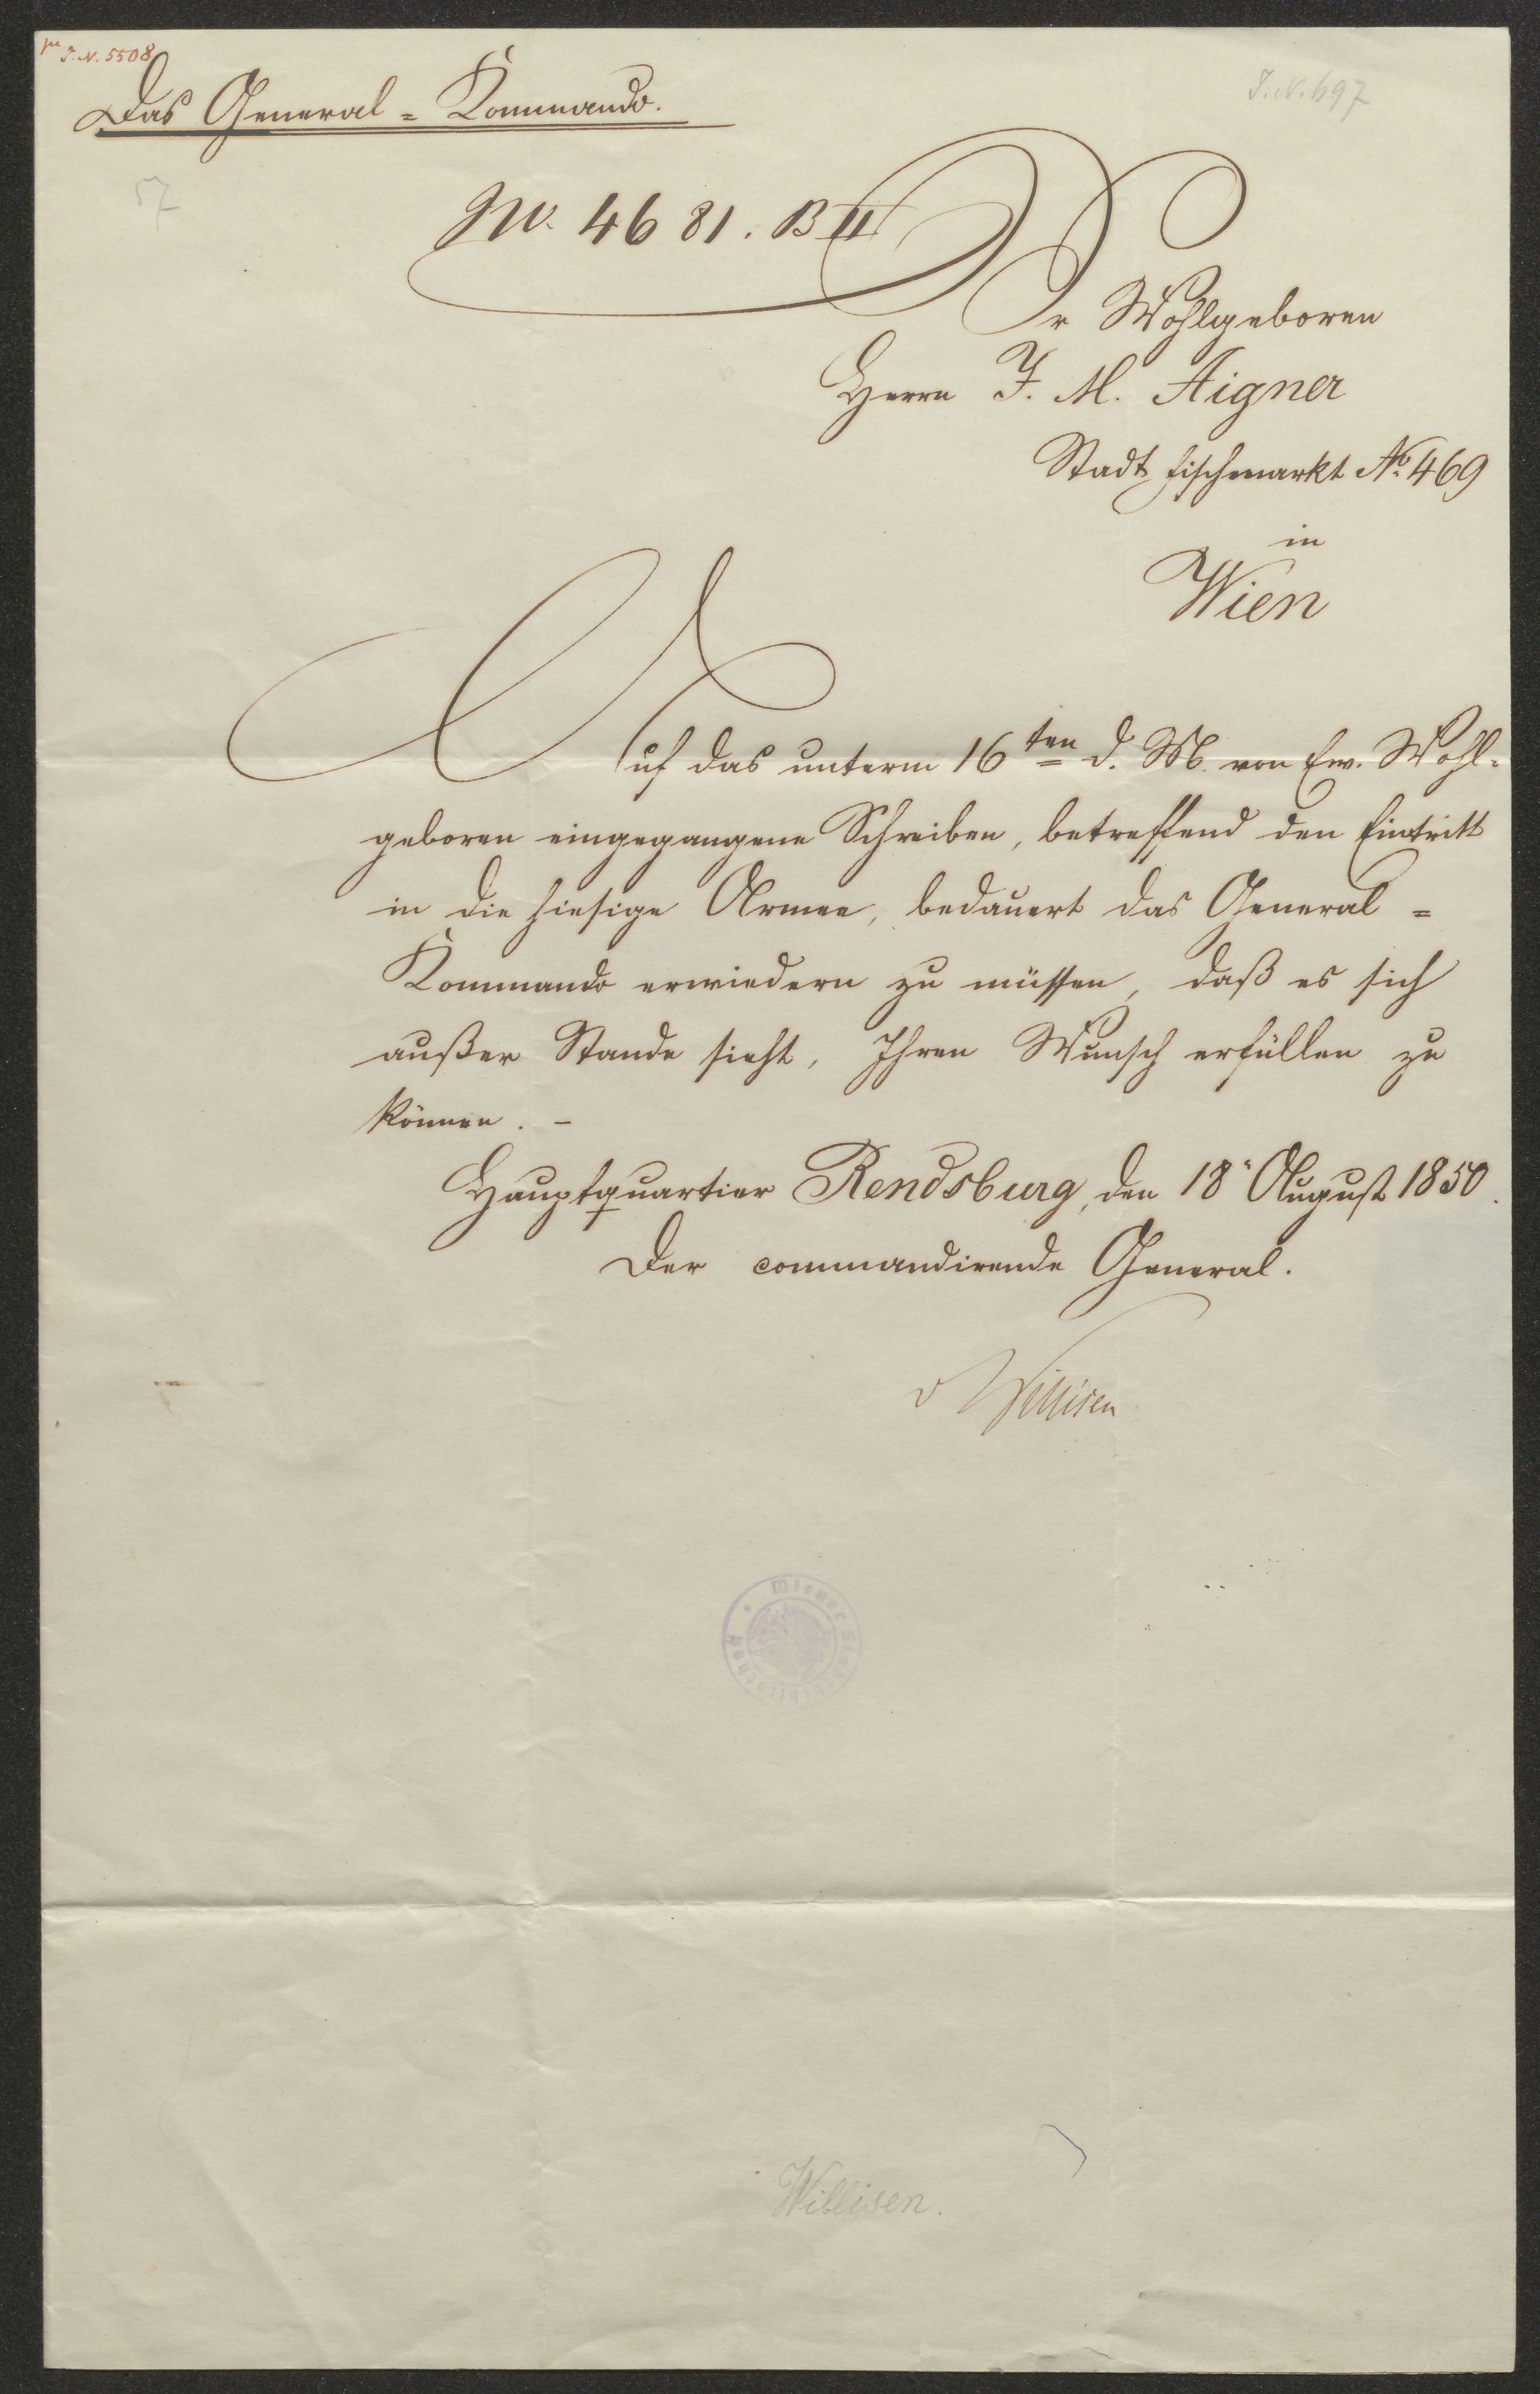 pr J. N. 5508
J. N. 697
Das General-Kommando.
57
No. 4681. B II
Sr Wohlgeboren
Herrn J. M. Aigner
Stadt Fischmarkt No. 469
in
Wien
Auf das unterm 16ten d. M. von Ew. Wohl-
geboren eingegangene Schreiben, betreffend den Eintritt
in die hiesige Armee, bedauert das General-
Kommando erwiedern zu müssen, daß es sich
außer Stande sieht, Ihren Wunsch erfüllen zu
können. –
Hauptquartier Rendsburg, den 18" August 1850.
Der commandirende General.
v Willisen
Wiener Stadtbibliothek
Willisen.